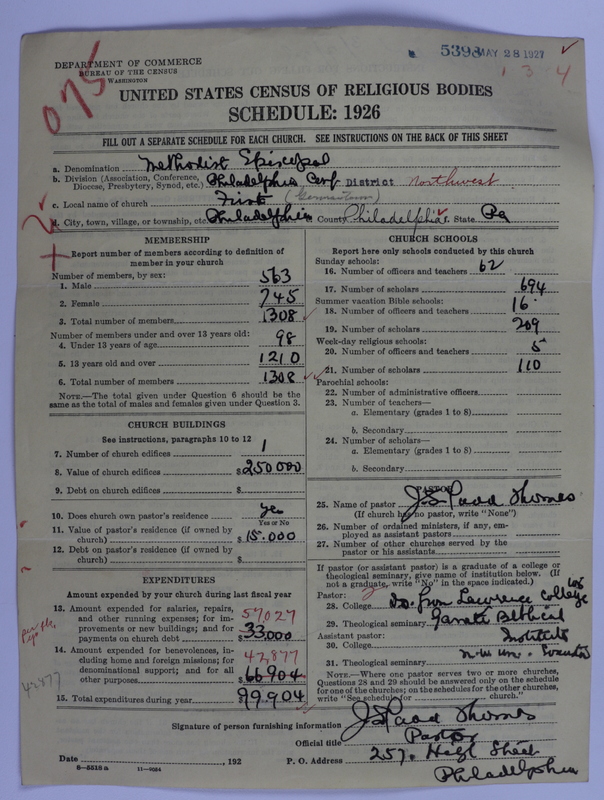 5393 MAY 28 1927
1 3 4
DEPARTMENT OF COMMERCE
BUREAU OF THE CENSUS
WASHINGTON
075
UNITED STATES CENSUS OF RELIGIOUS BODIES
SCHEDULE: 1926
FILL OUT A SEPARATE SCHEDULE FOR EACH CHURCH. SEE INSTRUCTIONS ON THE BACK OF THIS SHEET
a. Denomination Methodist Episcopal
b. Division (Association, Conference, Diocese, Presbytery, Synod, etc.) Philadelphia Conf District Northwest
c. Local name of church First (Germantown)
d. City, town, village, or township, etc. Philadelphia County Philadelphia State Pa
MEMBERSHIP
Report number of members according to definition of
member in your church
Number of members, by sex:
1. Male 563
2. Female 745
3. Total number of members 1308
Number of members under and over 13 years old:
4. Under 13 years of age 98
5. 13 years old and over 1210
6. Total number of members 1308
NOTE.—The total given under Question 6 should be the
same as the total of males and females given under Question 3.
CHURCH BUILDINGS
See instructions, paragraphs 10 to 12
7. Number of church edifices 1
8. Value of church edifices $250000
9. Debt on church edifices $
10. Does church own pastor's residence yes
Yes or No
11. Value of pastor's residence (if owned by
church) $15.000
12. Debt on pastor's residence (if owned by
church) $
EXPENDITURES
Amount expended by your church during last fiscal year
13. Amount expended for salaries, repairs,
and other running expenses; for im-
provements or new buildings; and for
payments on church debt 57,027 $33,000
14. Amount expended for benevolences, in-
cluding home and foreign missions; for
denominational support; and for all
other purposes 42,877 $66904
42877
15. Total expenditures during year $99.904
CHURCH SCHOOLS
Report here only schools conducted by this church
Sunday schools:
16. Number of officers and teachers 62
17. Number of scholars 694
Summer vacation Bible schools:
18. Number of officers and teachers 16
19. Number of scholars 209
Week-day religious schools:
20. Number of officers and teachers 5
21. Number of scholars 110
Parochial schools:
22. Number of administrative officers
23. Number of teachers—
a. Elementary (grades 1 to 8)
b. Secondary
24. Number of scholars—
a. Elementary (grades 1 to 8)
b. Secondary
PASTOR
25. Name of pastor J.S. Ladd Thomas
(If church has no pastor, write "None")
26. Number of ordained ministers, if any, em-
ployed as assistant pastors
27. Number of other churches served by the
pastor or his assistants
If pastor (or assistant pastor) is a graduate of a college or
theological seminary, give name of institution below. (If
not a graduate, write "No" in the space indicated.)
Pastor:
28. College from Lawrence College
29. Theological seminary Garrett Biblical
Assistant pastor: Institute
30. College
31. Theological seminary
NOTE.—Where one pastor serves two or more churches,
Questions 28 and 29 should be answered only on the schedule
for one of the churches; on the schedules for the other churches,
write "See schedule for church."
Signature of person furnishing information J S Ladd Thomas
Official title Pastor
Date , 192 P. O. Address 257. High Street
Philadelphia
8—5518a 11—9064